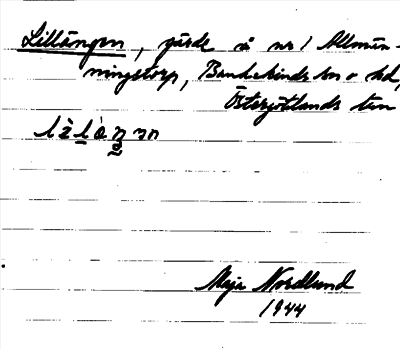 Lillängen, gärde å nr 1 Allmän-
ningstorp, Bankekinds sn o hd,
Östergötlands län
Maja Nordlund
1944